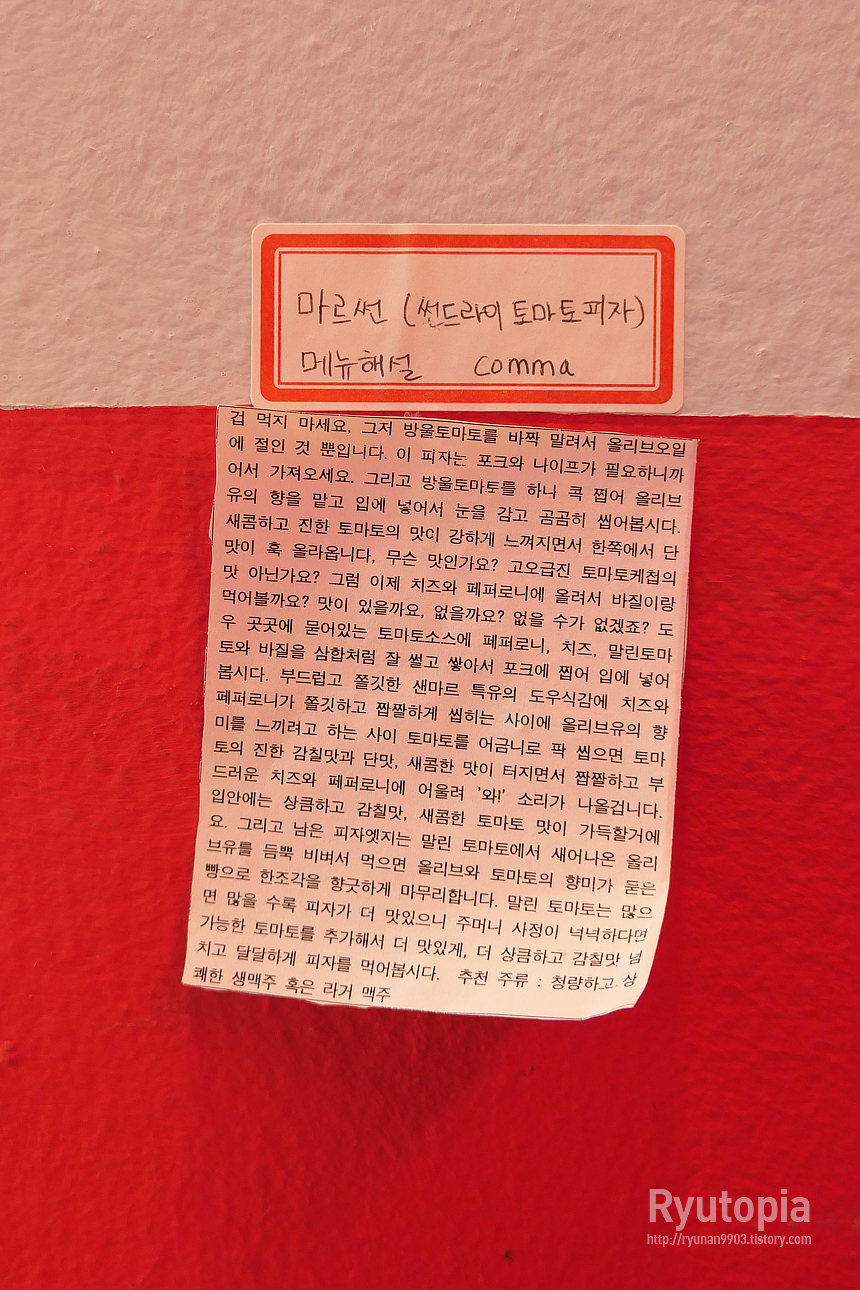 마르썬 (썬드라이 토마토피자)
메뉴해설 comma
겁 먹지 마세요, 그저 방울토마토를 바짝 말려서 올리브오일
에 절인 것 뿐입니다. 이 피자는 포크와 나이프가 필요하니까
어서 가져오세요. 그리고 방울토마토를 하나 콕 찝어 올리브
유의 향을 맡고 입에 넣어서 눈을 감고 곰곰히 씹어봅시다.
새콤하고 진한 토마토의 맛이 강하게 느껴지면서 한쪽에서 단
맛이 훅 올라옵니다, 무슨 맛인가요? 고오급진 토마토케첩의
맛 아닌가요? 그럼 이제 치즈와 페퍼로니에 올려서 바질이랑
먹어볼까요? 맛이 있을까요, 없을까요? 없을 수가 없겠죠? 도
우 곳곳에 묻어있는 토마토소스에 페퍼로니, 치즈, 말린토마
토와 바질을 삼합처럼 잘 썰고 쌓아서 포크에 찝어 입에 넣어
봅시다. 부드럽고 쫄깃한 샌마르 특유의 도우식감에 치즈와
페퍼로니가 쫄깃하고 짭짤하게 씹히는 사이에 올리브유의 향
미를 느끼려고 하는 사이 토마토를 어금니로 팍 씹으면 토마
토의 진한 감칠맛과 단맛, 새콤한 맛이 터지면서 짭짤하고 부
드러운 치즈와 페퍼로니에 어울려 '와!' 소리가 나올겁니다.
입안에는 상큼하고 감칠맛, 새콤한 토마토 맛이 가득할거에
요. 그리고 남은 피자엣지는 말린 토마토에서 새어나온 올리
브유를 듬뿍 비벼서 먹으면 올리브와 토마토의 향미가 묻은
빵으로 한조각을 향긋하게 마무리합니다. 말린 토마토는 많으
면 많을 수록 피자가 더 맛있으니 주머니 사정이 넉넉하다면
가능한 토마토를 추가해서 더 맛있게, 더 상큼하고 감칠맛 넘
치고 달달하게 피자를 먹어봅시다. 추천 주류 : 청량하고 상
쾌한 생맥주 혹은 라거 맥주
Ryutopia
http://ryunan9903.tistory.com